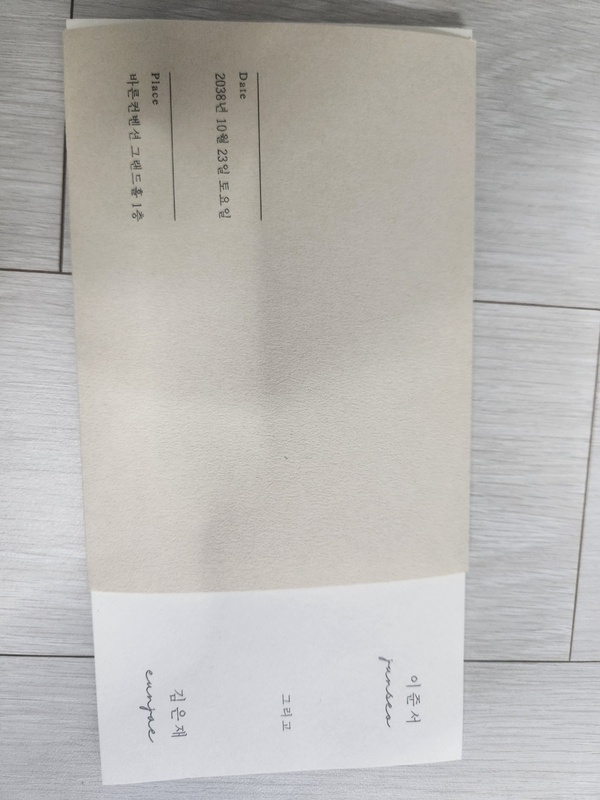 Date
2038년 10월 23일 토요일
Place
바른컨벤션 그랜드홀 1층
이준서
junseo
그리고
김은재
eunjae